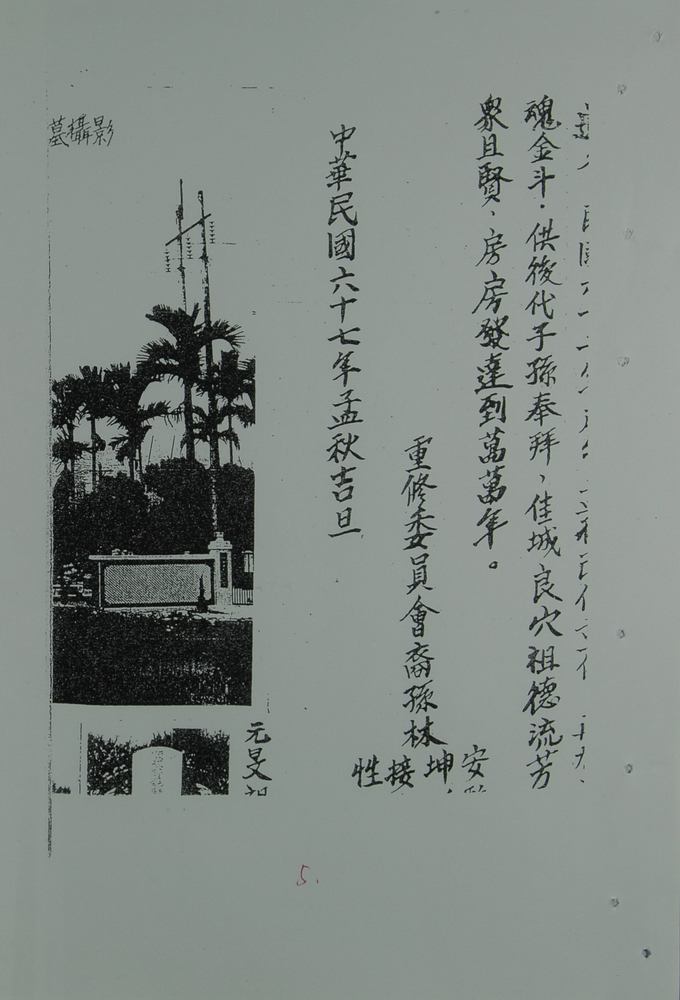 魂金斗.供後代子孫奉拜、佳城良穴祖德流芳
衆且賢、房房發達到萬萬年。
重修委員會裔孫林
安
坤
接
性
中華民國六十七年孟秋吉旦
墓攝影
元旻
5.